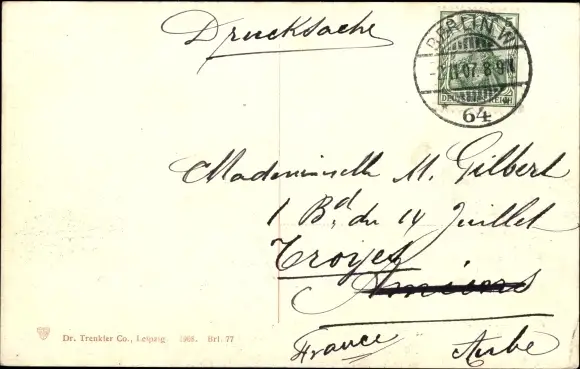 Drucksache
5
BERLIN W.
11.07. 8-9V.
DEUTSCHES REICH
* 64
Mademoiselle M. Gilbert
1 Bd du 14 Juillet
Troyes
Amiens
France Aube
Dr. Trenkler Co., Leipzig 1908. Brl. 77